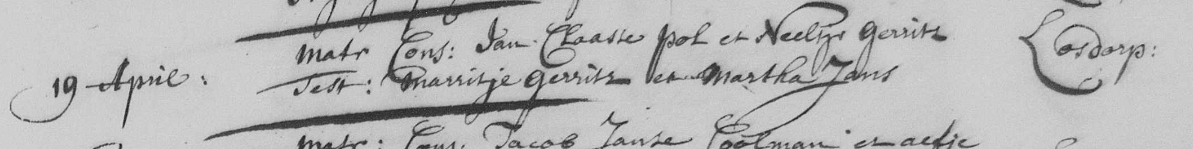 Matr Cons: Jan Claasse pol et Neeltje Gerrits Losdorp:
19 April: Test: Marritje Gerrits et Martha Jans
Matr: Cons: Jacob Janse Coolman et aefje